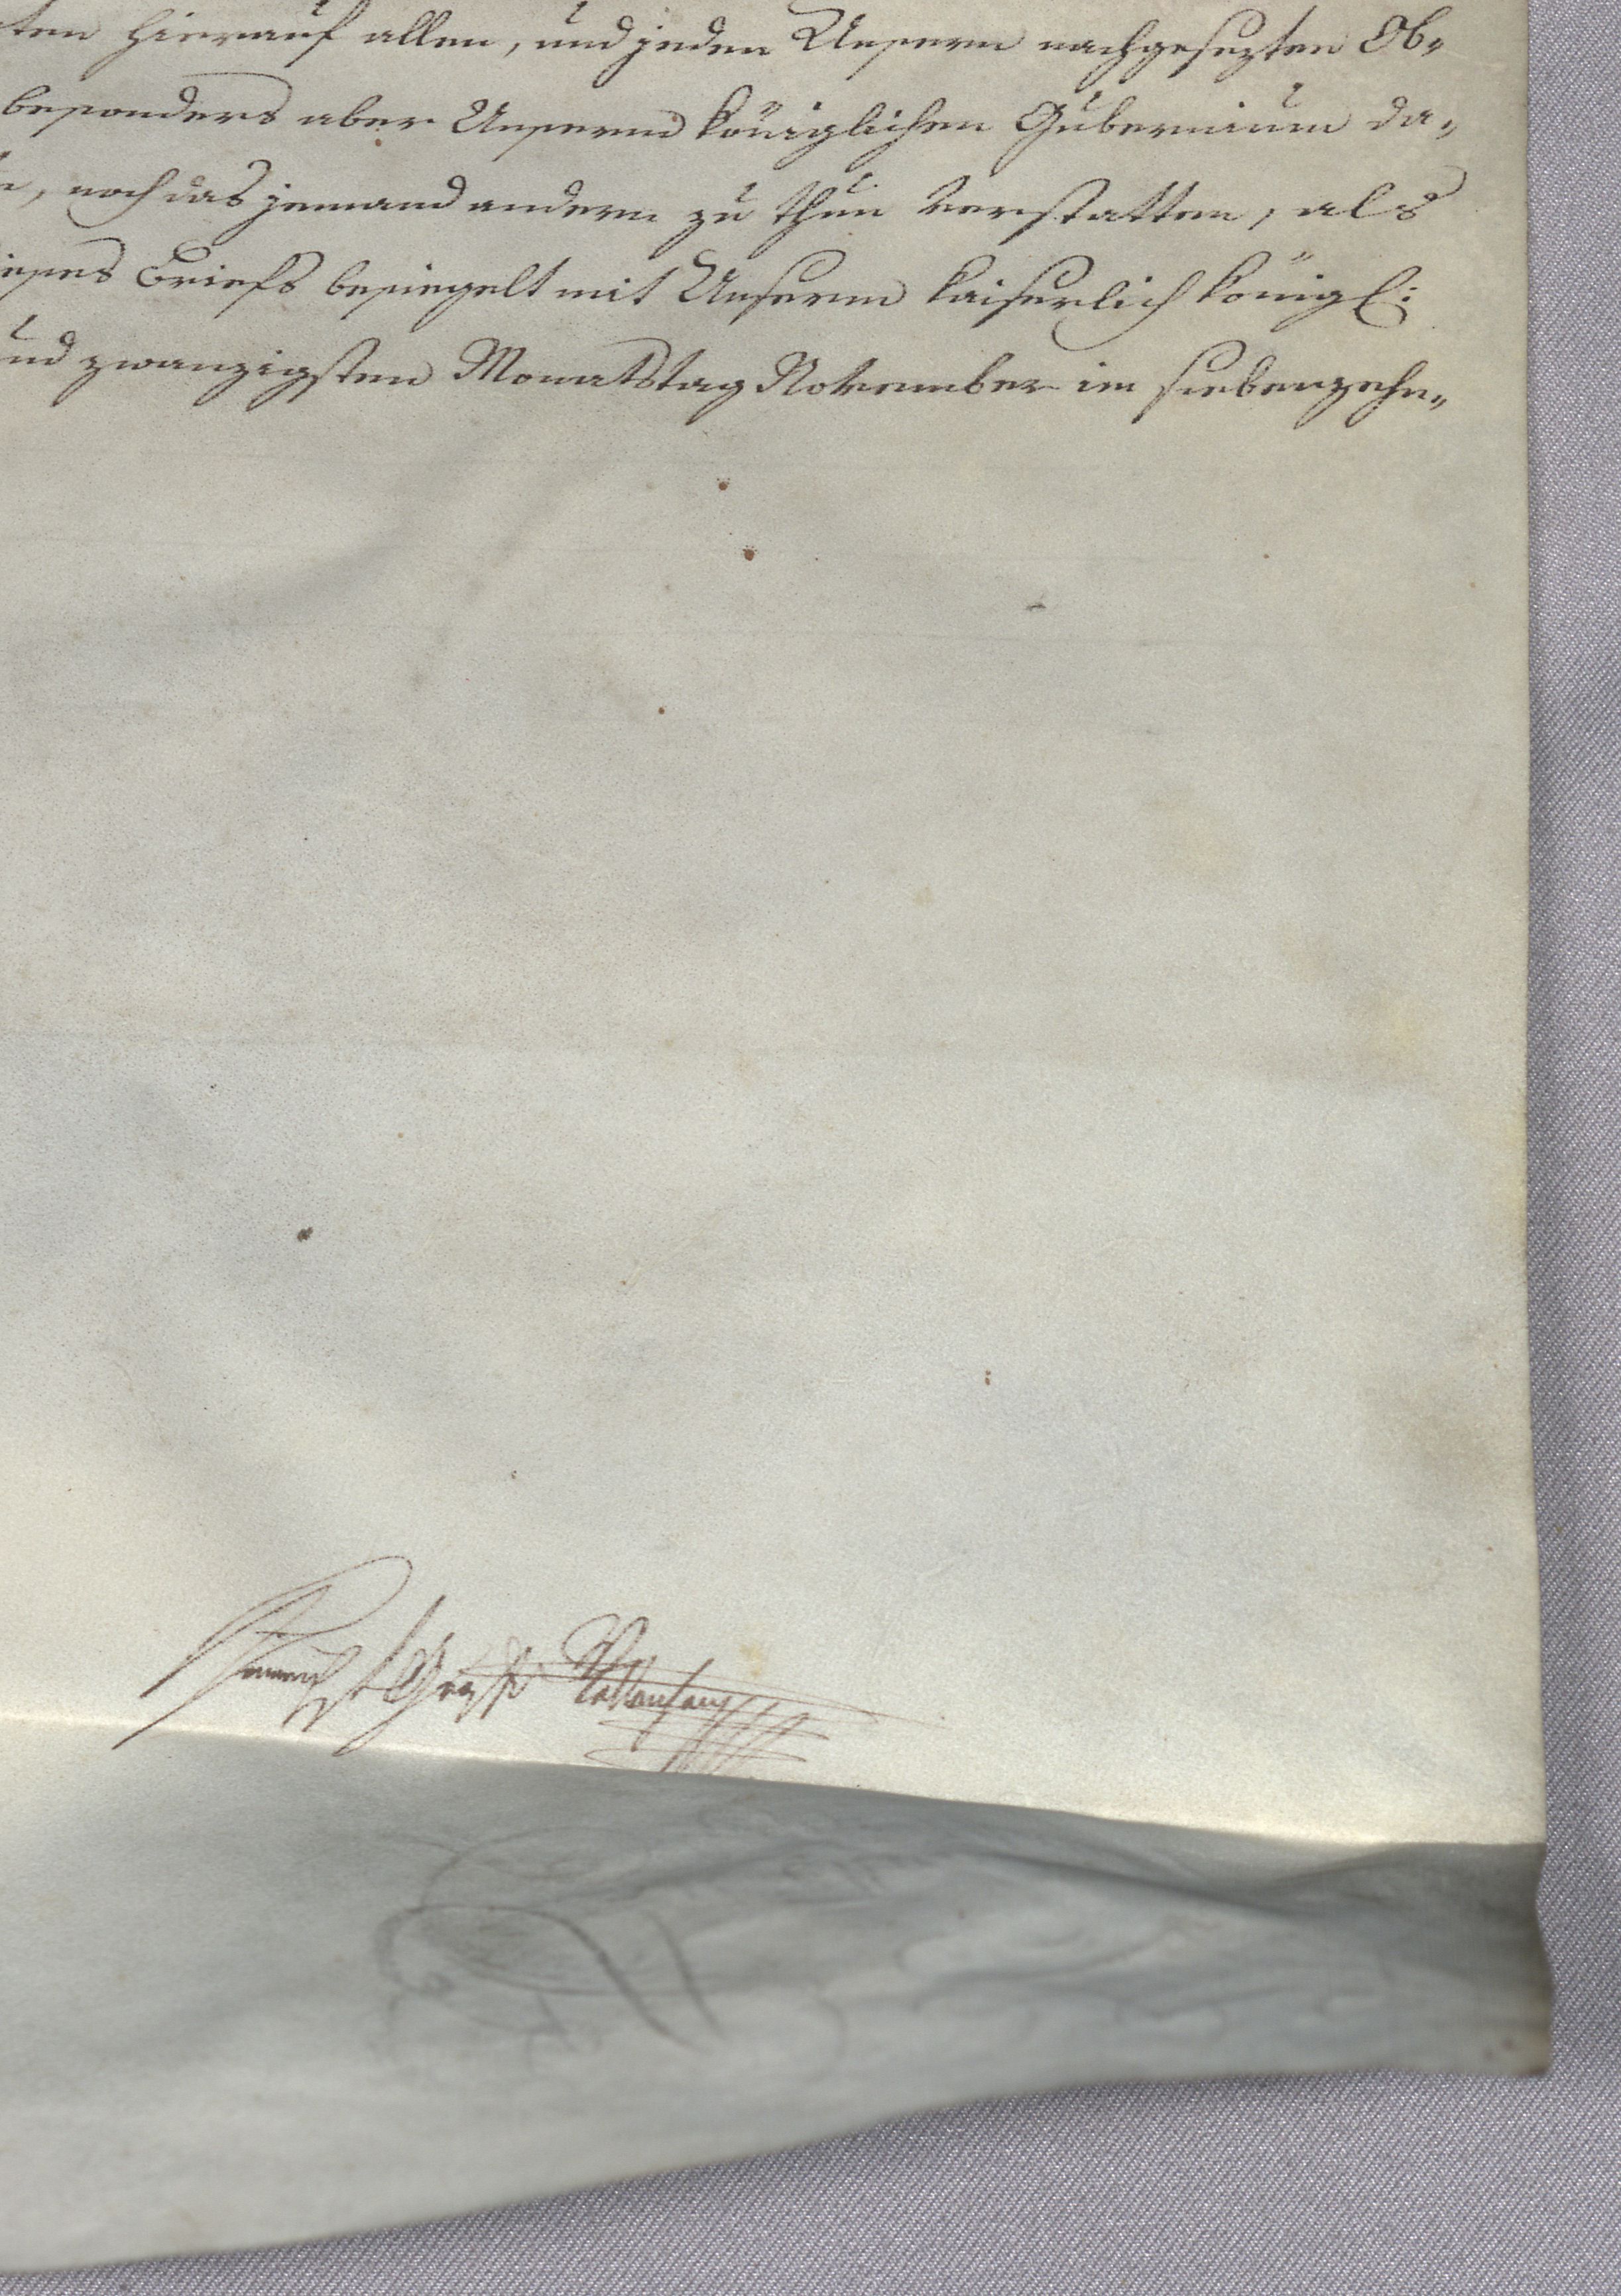 ten hierauf allen, und jeden Unsern nachgesezten Ob„
besonders aber Unserm königlichen Gubernium da„
, noch das jemand andern zu thun verstatten, als
ieses Briefs besiegelt mit Unserm kaiserlich königl:
und zwanzigsten Monatstag November im siebenzehn„